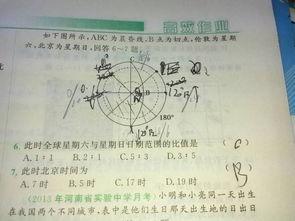 高效作业
如下图所示,ABC为晨昏线,B点为切点,伦敦为星期
六,北京为星期日,回答6~7题。
C
B
180°
6. 此时全球星期六与星期日日期范围的比值是 ( )
A.1:1 B.2:1 C.5:3 D.3:5
7. 此时北京时间为 ( B
A.7时 B.5时 C.17时 D.19时
(2013年河南省实验中学月考)小明和小亮同一天出生
在我国两个不同城市,表中是他们生日那天出生地的日出日